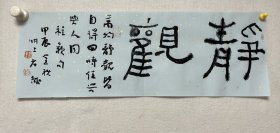 靜觀
萬物靜觀皆
自得四時佳興
與人同
程顥句
甲辰金秋